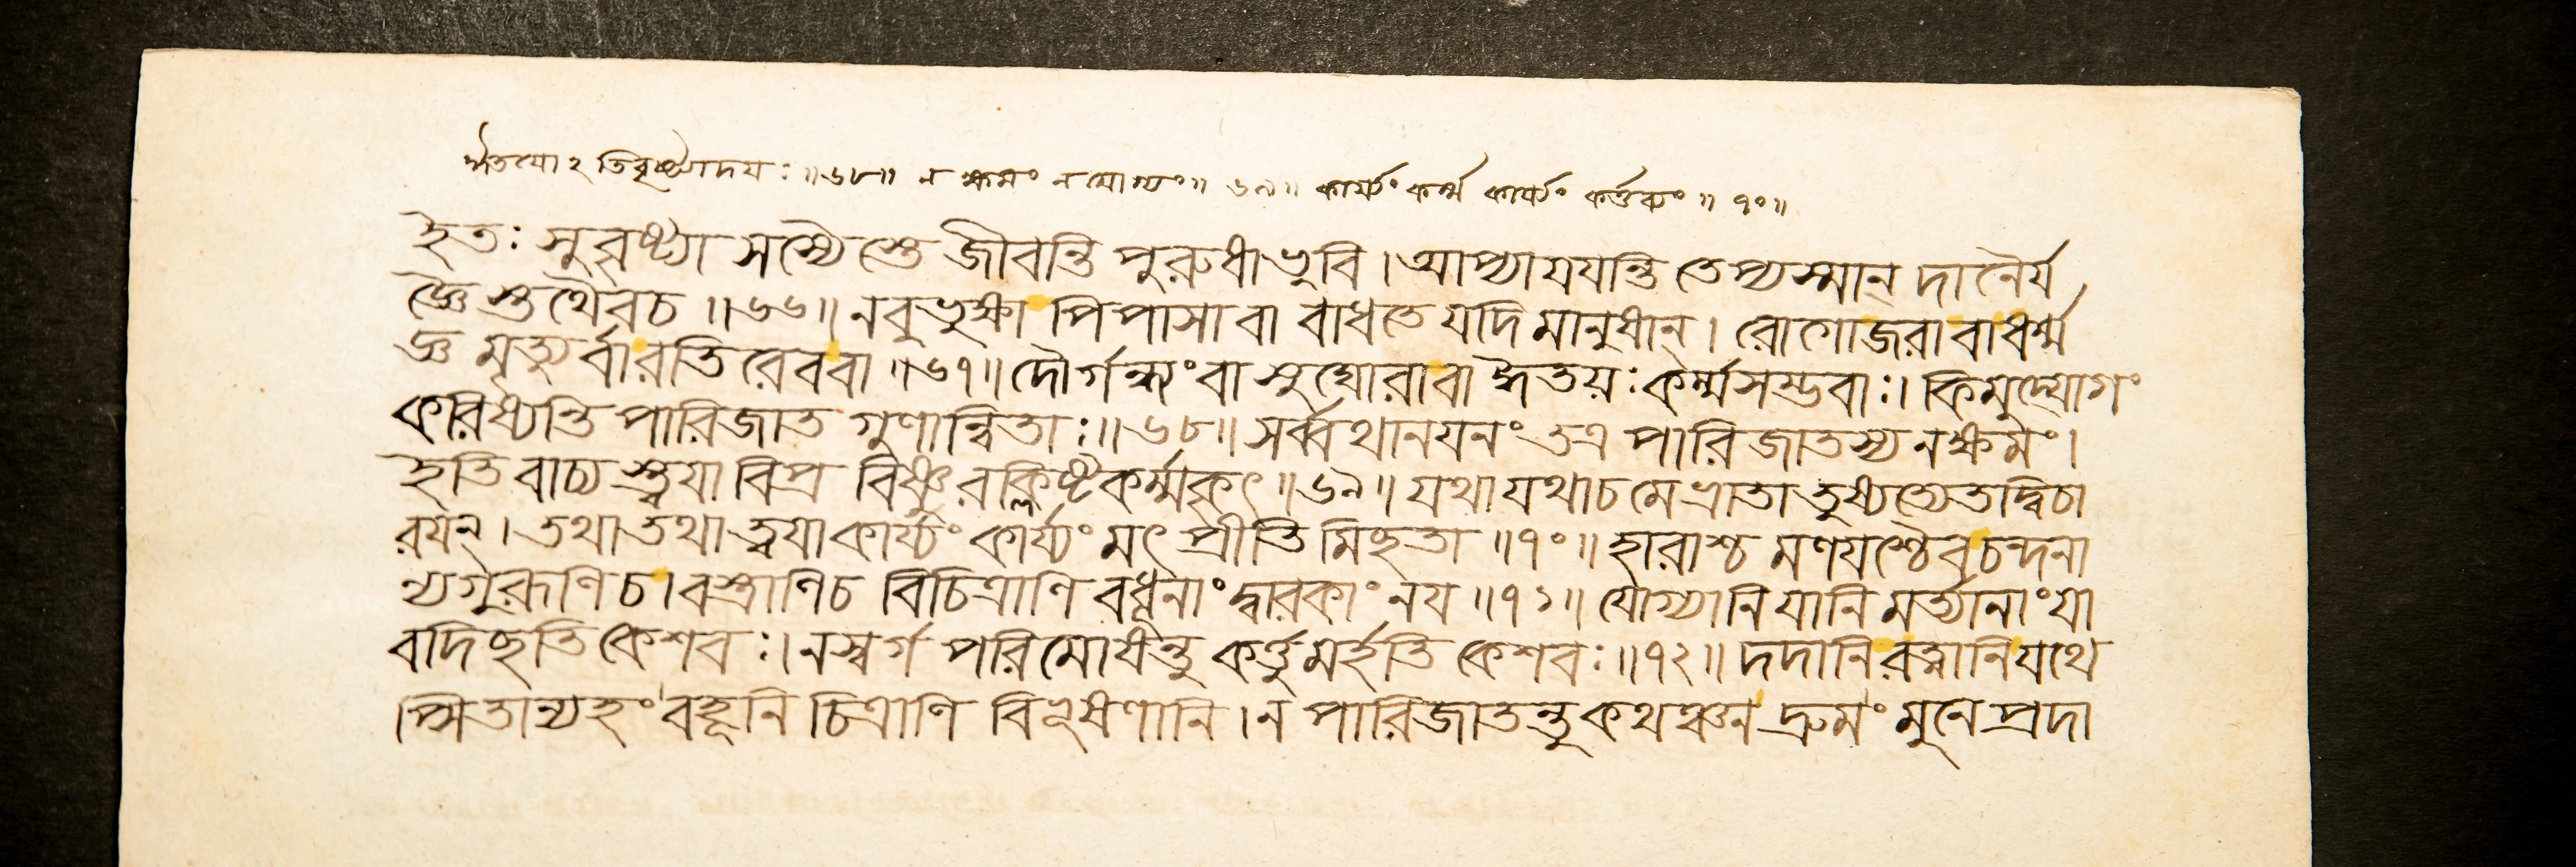 ঈতয়োঽতিবৃষ্ট্যাদয়ঃ ॥৬৮॥ ন ক্ষমং ন যোগ্যং॥ ৬৯॥ কার্য্যং কর্ম্ম কার্য্যং কর্ত্তব্যং ॥ ৭০॥
ইতঃ সুবৃষ্ট্যা সস্যৈস্তে জীবন্তি পুরুষা ভুবি । আপ্যায়য়ন্তি তেপ্যস্মান্ দানৈর্য
জ্ঞৈস্তথৈবচ ॥৬৬॥ ন বুভুক্ষা পিপাসা বা বাধতে যদি মানুষান্ । রোগোজরা বা ধর্ম্ম
জ্ঞ মৃত্যুর্বারতিরেববা ॥৬৭॥ দৌর্গন্ধ্যং বা সুঘোরা বা ঈতয়ঃ কর্ম্মসম্ভবাঃ। কিমুদ্যোগং
করিষ্যন্তি পারিজাত গুণান্বিতাঃ ॥৬৮॥ সর্ব্বথানয়নং তত্র পারিজাতস্য ন ক্ষমং ।
ইতি বাচ্যস্ত্বয়া বিপ্র বিষ্ণুরক্লিষ্টকর্ম্মকৃৎ ॥৬৯॥ যথা যথা চ মে ভ্রাতা তুষ্যত্যেতদ্বিচা
রয়ন্ । তথা তথা ত্বয়া কার্য্যং কার্য্যং মৎ প্রীতিমিচ্ছতা ॥৭০॥ হারাশ্চ মণয়শ্চৈব চন্দনা
ন্যগুরূণি চ। বস্ত্রাণিচ বিচিত্রাণি বধূনাং দ্বারকাং নয় ॥৭১॥ যোগ্যানি যানি মর্ত্যানাং যা
বদিচ্ছতি কেশবঃ । ন স্বর্গ পরিমোষন্তু কর্ত্তুমর্হতি কেশবঃ ॥৭২॥ দদানি রত্নানি যথে
প্সিতান্যহং বহূনি চিত্রাণি বিভূষণানি । ন পারিজাতন্তু কথঞ্চন দ্রুমং মুনে প্রদা